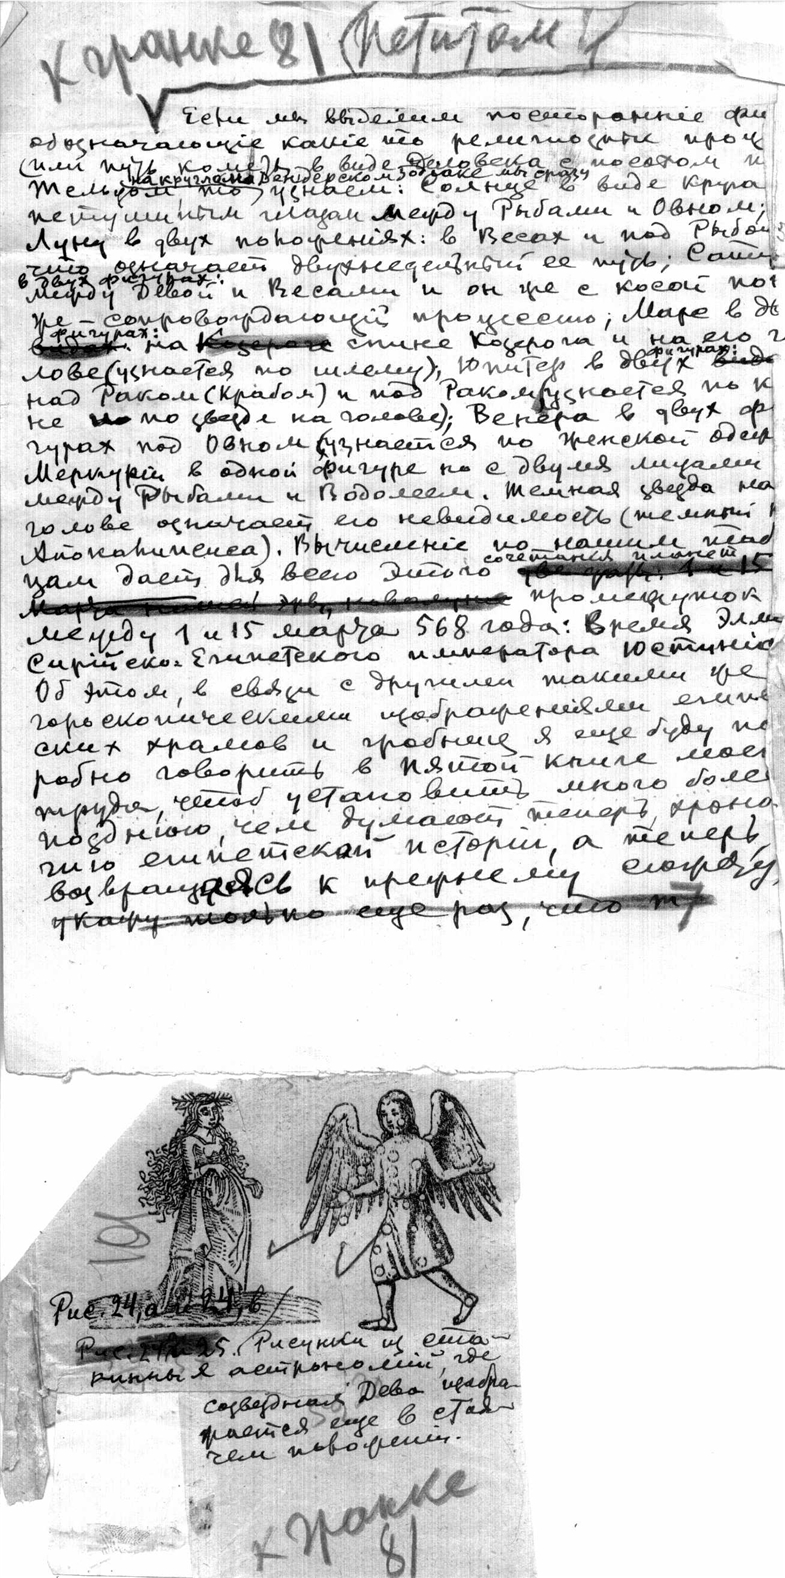 к гранке 81 (Петитом)
Если мы выделим посторонние фи
обозначающіе какіе то религиозные проц
(или путь кометы в виде человека с посохом и
на круглом Дендерском Зодиаке мы сразу
узнаем: Солнце в виде круга
петушиным глазом между Рыбами и Овном;
Луну в двух положеніях: в Весах и под Рыбой
что означает двухнедельный ее путь; Сату
в двух фигурах:
между Девой и Весами и он же с косой по
же сопровождающій процессію; Марс в дв
фигурах:
на Козероге спине Козерога и на его г
фигурах:
лове (узнается по шлему), Юпитер в двух
над Раком (Крабом) и под Раком (узнается по к
не по звезде на голове); Венера в двух ф
гурах под Овном (узнается по женской одеж
Меркурій в одной фигуре но с двумя лицами
между Рыбами и Водолеем. Темная звезда на
голове означает его невидимость (темный
Апокалипсиса). Вычисленіе по нашим таб
сочетания планет
цам дает для всего этого две даты: 1 и 15
Марта нашей эры, промежуток
между 1 и 15 марта 568 года: Время Элли
Сирійско-Египетского императора Юстиніа
Об этом, в связи с другими такими же
гороскопическими изображеніями египе
ских храмов и гробниц я еще буду по
робно говорить в пятой книге моег
труда, чтоб установить много боле
позднюю, чем думают теперь, хроно
гию египетской исторіи, а теперь,
возвращаясь к прежнему сюжету,
укажу только еще раз, что т
101
Рис. 24, а и 24, в
Рис. 25. Рисунки из ста-
ринных астрономий, где
созвездная Дева изобра-
жается еще в стоя-
чем положении.
к гранке
81